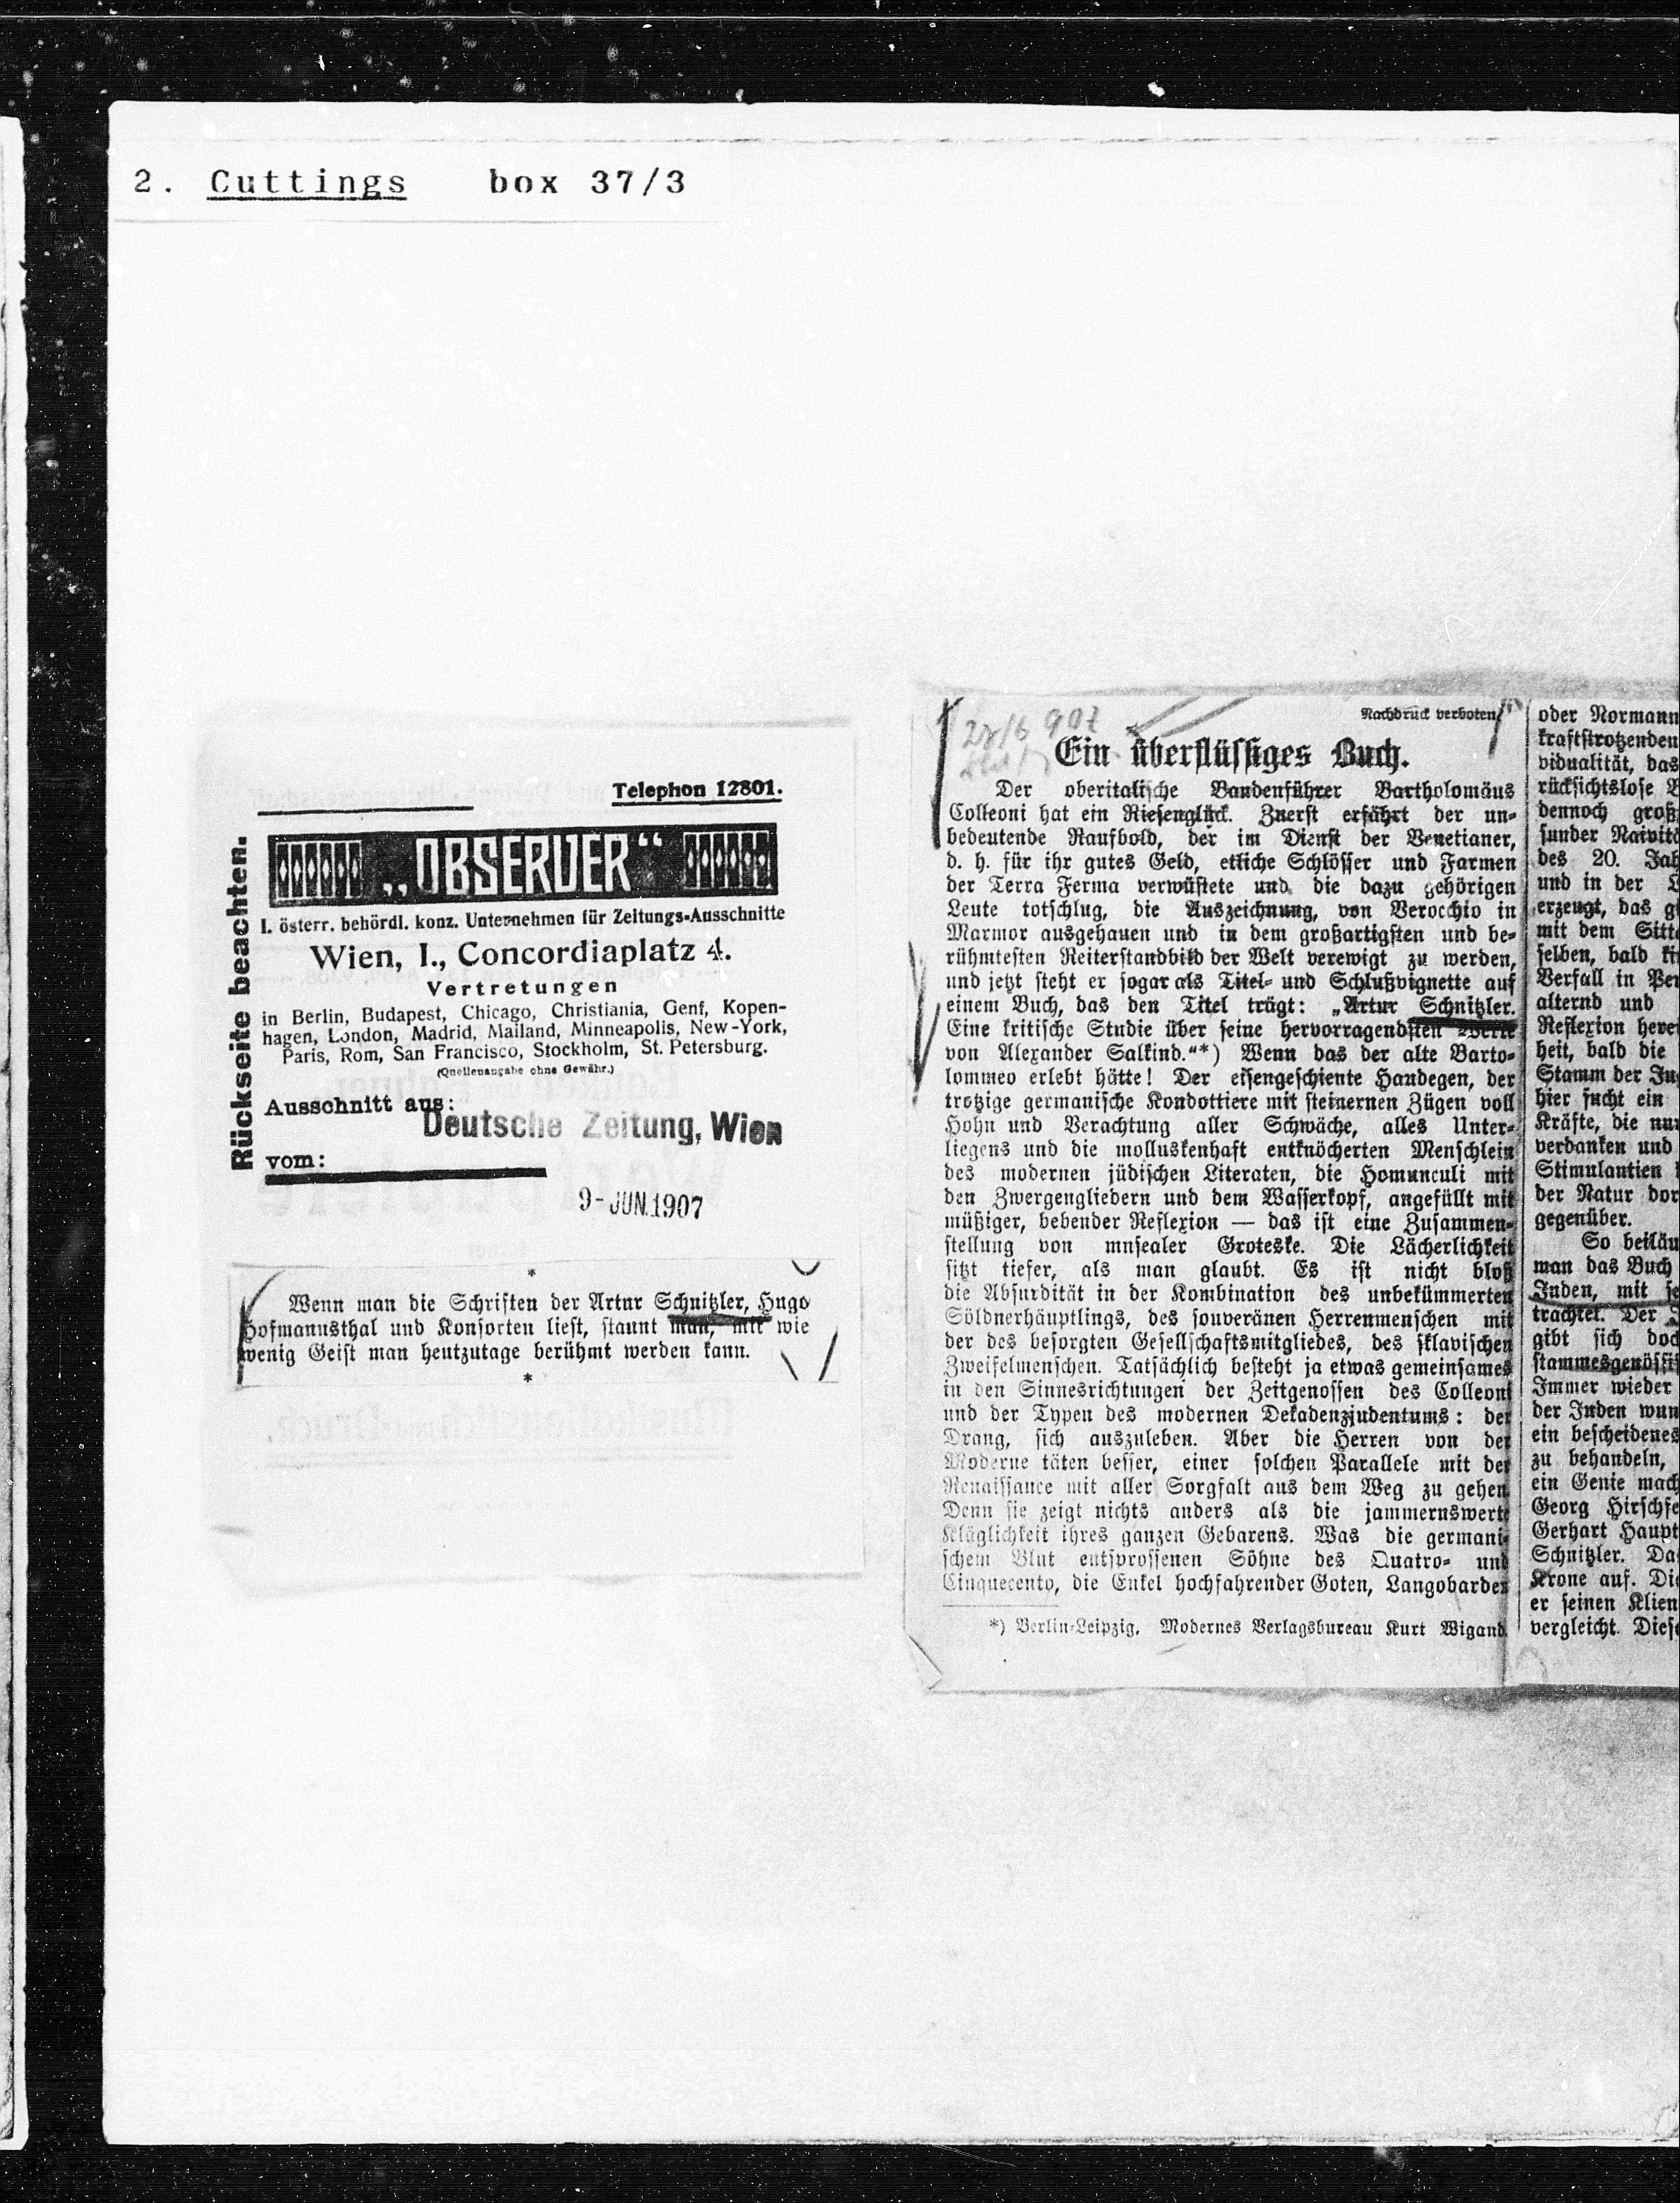 2. Cuttings box 37/3
Telephon 12801.
„OBSERVER“
I. österr. behördl. konz. Unternehmen für Zeitungs-Ausschnitte
Wien, I., Concordiaplatz 4.
Vertretungen
in Berlin, Budapest, Chicago, Christiania, Genf, Kopen-
hagen, London, Madrid, Mailand, Minneapolis, New-York,
Paris, Rom, San Francisco, Stockholm, St. Petersburg.
(Quellenangabe ohne Gewähr.)
Rückseite beachten.
Ausschnitt aus:
Deutsche Zeitung, Wien
vom:
9- JUN. 1907
*
Wenn man die Schriften der Artur Schnitzler, Hugo
Hofmannsthal und Konsorten liest, staunt man, mit wie
wenig Geist man heutzutage berühmt werden kann.
*
907
Nachdruck verboten
Ein überflüssiges Buch.
Der oberitalische Bandenführer Bartholomäus
Colleoni hat ein Riesenglück. Zuerst erfährt der un-
bedeutende Raufbold, der im Dienst der Venetianer,
d. h. für ihr gutes Geld, etliche Schlösser und Farmen
der Terra Ferma verwüstete und die dazu gehörigen
Leute totschlug, die Auszeichnung, von Verocchio in
Marmor ausgehauen und in dem großartigsten und be-
rühmtesten Reiterstandbild der Welt verewigt zu werden,
und jetzt steht er sogar als Titel- und Schlußvignette auf
einem Buch, das den Titel trägt: „Artur Schnitzler.
Eine kritische Studie über seine hervorragendsten Werke
von Alexander Salkind.“*) Wenn das der alte Barto-
lommeo erlebt hätte! Der eisengeschiente Haudegen, der
trotzige germanische Kondottiere mit steinernen Zügen voll
Hohn und Verachtung aller Schwäche, alles Unter-
liegens und die molluskenhaft entknöcherten Menschlein
des modernen jüdischen Literaten, die Homunculi mit
den Zwergengliedern und dem Wasserkopf, angefüllt mit
müßiger, bebender Reflexion — das ist eine Zusammen-
stellung von musealer Groteske. Die Lächerlichkeit
sitzt tiefer, als man glaubt. Es ist nicht bloß
die Absurdität in der Kombination des unbekümmerten
Söldnerhäuptlings, des souveränen Herrenmenschen mit
der des besorgten Gesellschaftsmitgliedes, des sklavischen
Zweifelmenschen. Tatsächlich besteht ja etwas gemeinsames
in den Sinnesrichtungen der Zeitgenossen des Colleoni
und der Typen des modernen Dekadenzjudentums: der
Drang, sich auszuleben. Aber die Herren von der
Moderne täten besser, einer solchen Parallele mit der
Renaissance mit aller Sorgfalt aus dem Weg zu gehen.
Denn sie zeigt nichts anders als die jammernswerte
Kläglichkeit ihres ganzen Gebarens. Was die germani-
schem Blut entsprossenen Söhne des Quatro- und
Cinquecento, die Enkel hochfahrender Goten, Langobarden
*) Berlin-Leipzig. Modernes Verlagsbureau Kurt Wigand.
oder Normann
kraftstrotzenden
vidualität, das
rücksichtslose
dennoch groß
sunder Naivitä
des 20. Jah
und in der
erzeugt, das g
mit dem Sitt
selben, bald ki
Verfall in Per
alternd und
Reflexion herei
heit, bald die
Stamm der Ju
hier sucht ein
Kräfte, die nu
verdanken und
Stimulantien
der Natur dor
gegenüber.
So beiläu
man das Buch
Juden, mit se
trachtet. Der
gibt sich doc
stammesgenössis
Immer wieder
der Juden wun
ein bescheidenes
zu behandeln,
ein Genie mach
Georg Hirschfe
Gerhart Haupt
Schnitzler. Da
Krone auf. Die
er seinen Klien
vergleicht. Diese